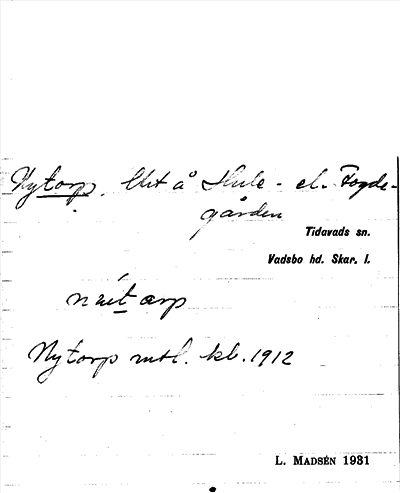 Nytorp. Uxt å Hule- el. Fogde-
gården
Tidavads sn.
Vadsbo hd. Skar. l.
Nytorp mtl. kb. 1912
L. MADSÉN 1931